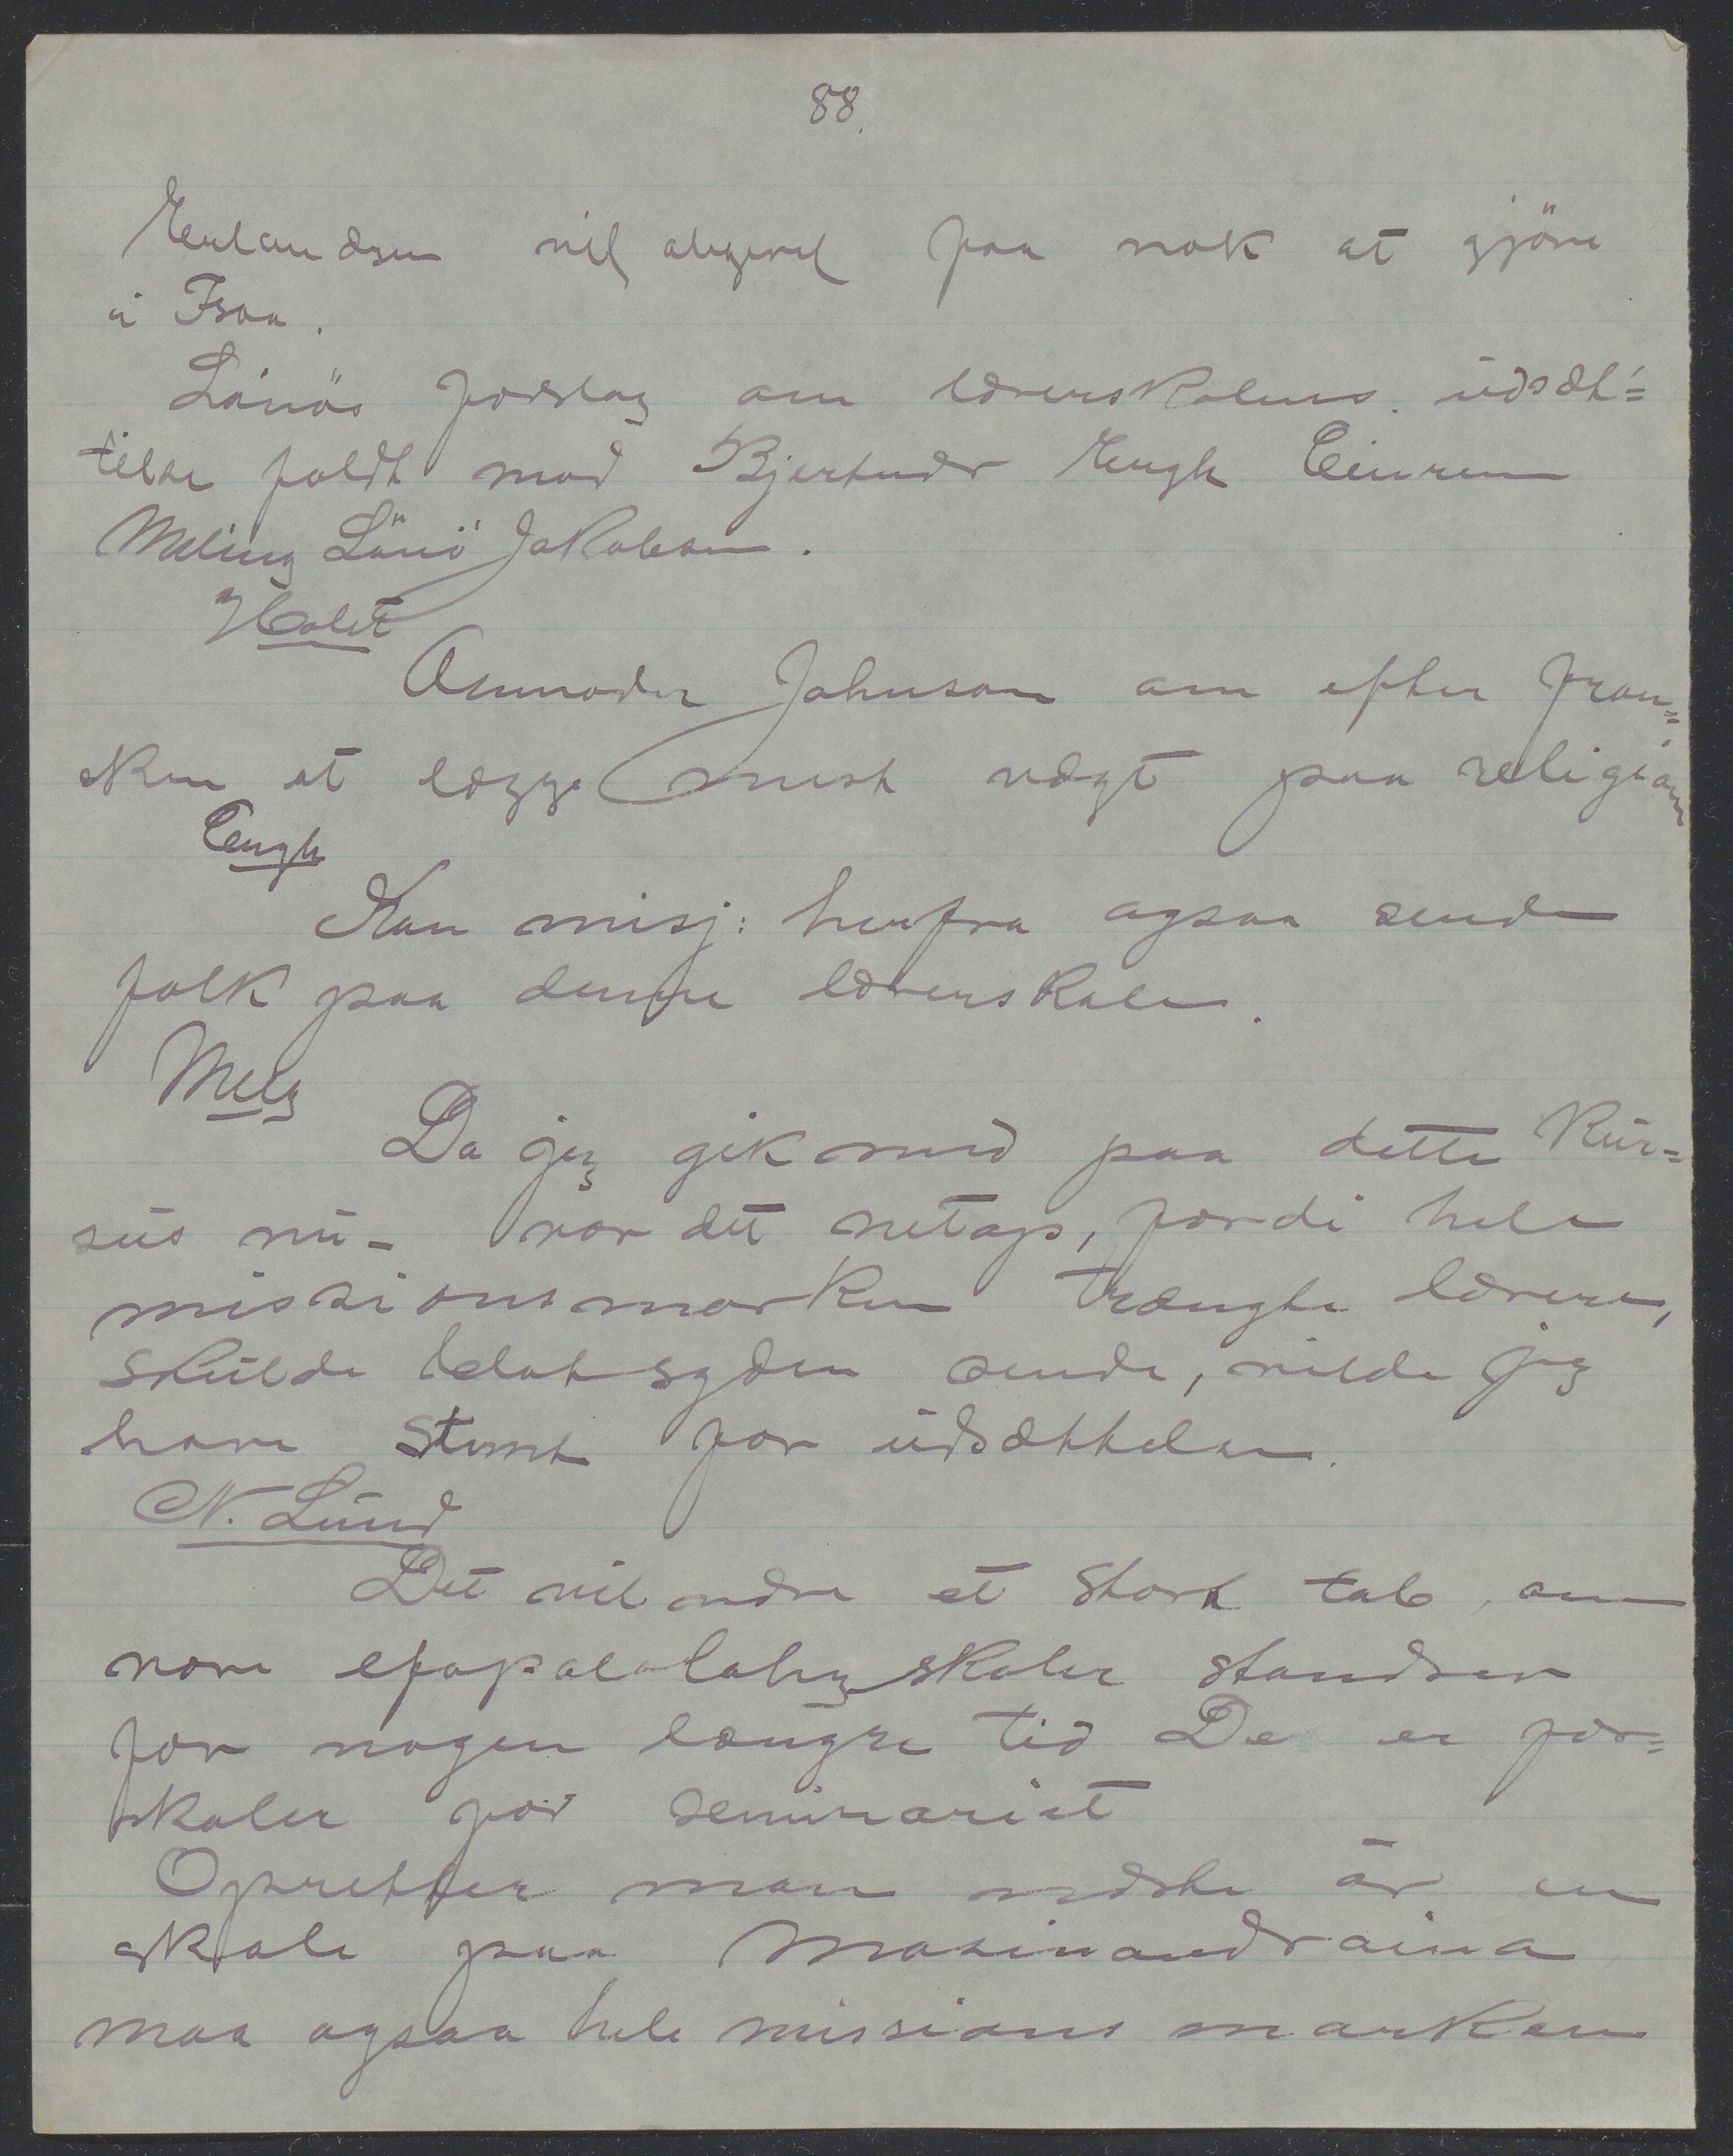 88.
Erlandsen vil alligevel faa nok at gjöre
i Tsoa.
Lönös forslag om lærerskolens udsæt=
telse faldt mod Bjertnæs Engh Einrem
Meling Lönö Jakobsen.
Holst
Anmoder Johnson om efter fran=
sken at lægge mest vægt paa religion
Engh
Kan misj: herfra ogsaa sende
folk paa denne lærerskole.
Melg
Da jeg gik med paa dette kur=
sus nu - var det netop, fordi hele
missionsmarken trængte lærere,
skulde blot syden sende, vilde jeg
have stemt for udsættelse.
N. Lund
Det vil være et stort tab, om
vore skoler standser
for nogen længre tid De er for=
skoler for seminariet
Opretter man næste år en
skole paa Masinandraina
maa ogsaa hele missions marken